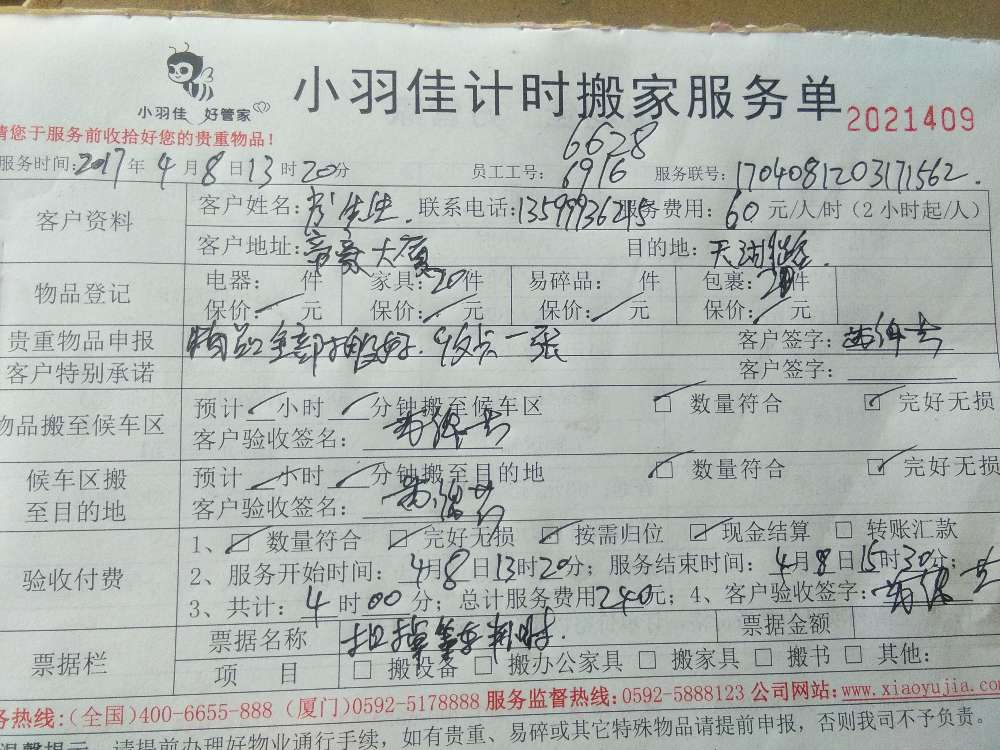 小羽佳 好管家
小羽佳计时搬家服务单
2021409
请您于服务前收拾好您的贵重物品！
6628
服务时间：2017年4月8日13时20分 员工工号：6916 服务联号：1704081203171562.
客户资料 客户姓名： 联系电话：13599936245 服务费用：60元/人/时（2小时起/人）
客户地址：帝豪大厦 目的地：天湖
物品登记 电器： 件 家具：20件 易碎品： 件 包裹：20件
保价： 元 保价： 元 保价： 元 保价： 元
贵重物品申报 物品全部搬好. 收点一张 客户签字：
客户特别承诺 客户签字：
物品搬至候车区 预计 小时 分钟搬至候车区 数量符合 完好无损
客户验收签名：
候车区搬至目的地 预计 小时 分钟搬至目的地 数量符合 完好无损
客户验收签名：
验收付费 1、 数量符合 完好无损 按需归位 现金结算 转账汇款
2、服务开始时间：4月8日13时20分；服务结束时间：4月8日15时30分；
3、共计：4时00分；总计服务费用240元；4、客户验收签字：
票据栏 票据名称 票据金额
项 目 搬设备 搬办公家具 搬家具 搬书 其他：
务热线：（全国）400-6655-888（厦门）0592-5178888 服务监督热线：0592-5888123 公司网站：www.xiaoyujia.com
温馨提示 请提前办理好物业通行手续，如有贵重、易碎或其它特殊物品请提前申报，否则我司不予负责。